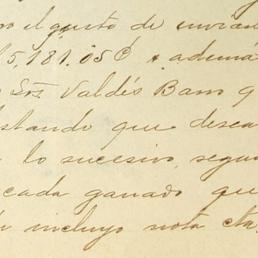 el gusto de envia
5,181.05 ¢ & ademá
Srs Valdés Bam q
stando que desea
lo sucesivo, segu
cada ganado que
incluyo nota cta